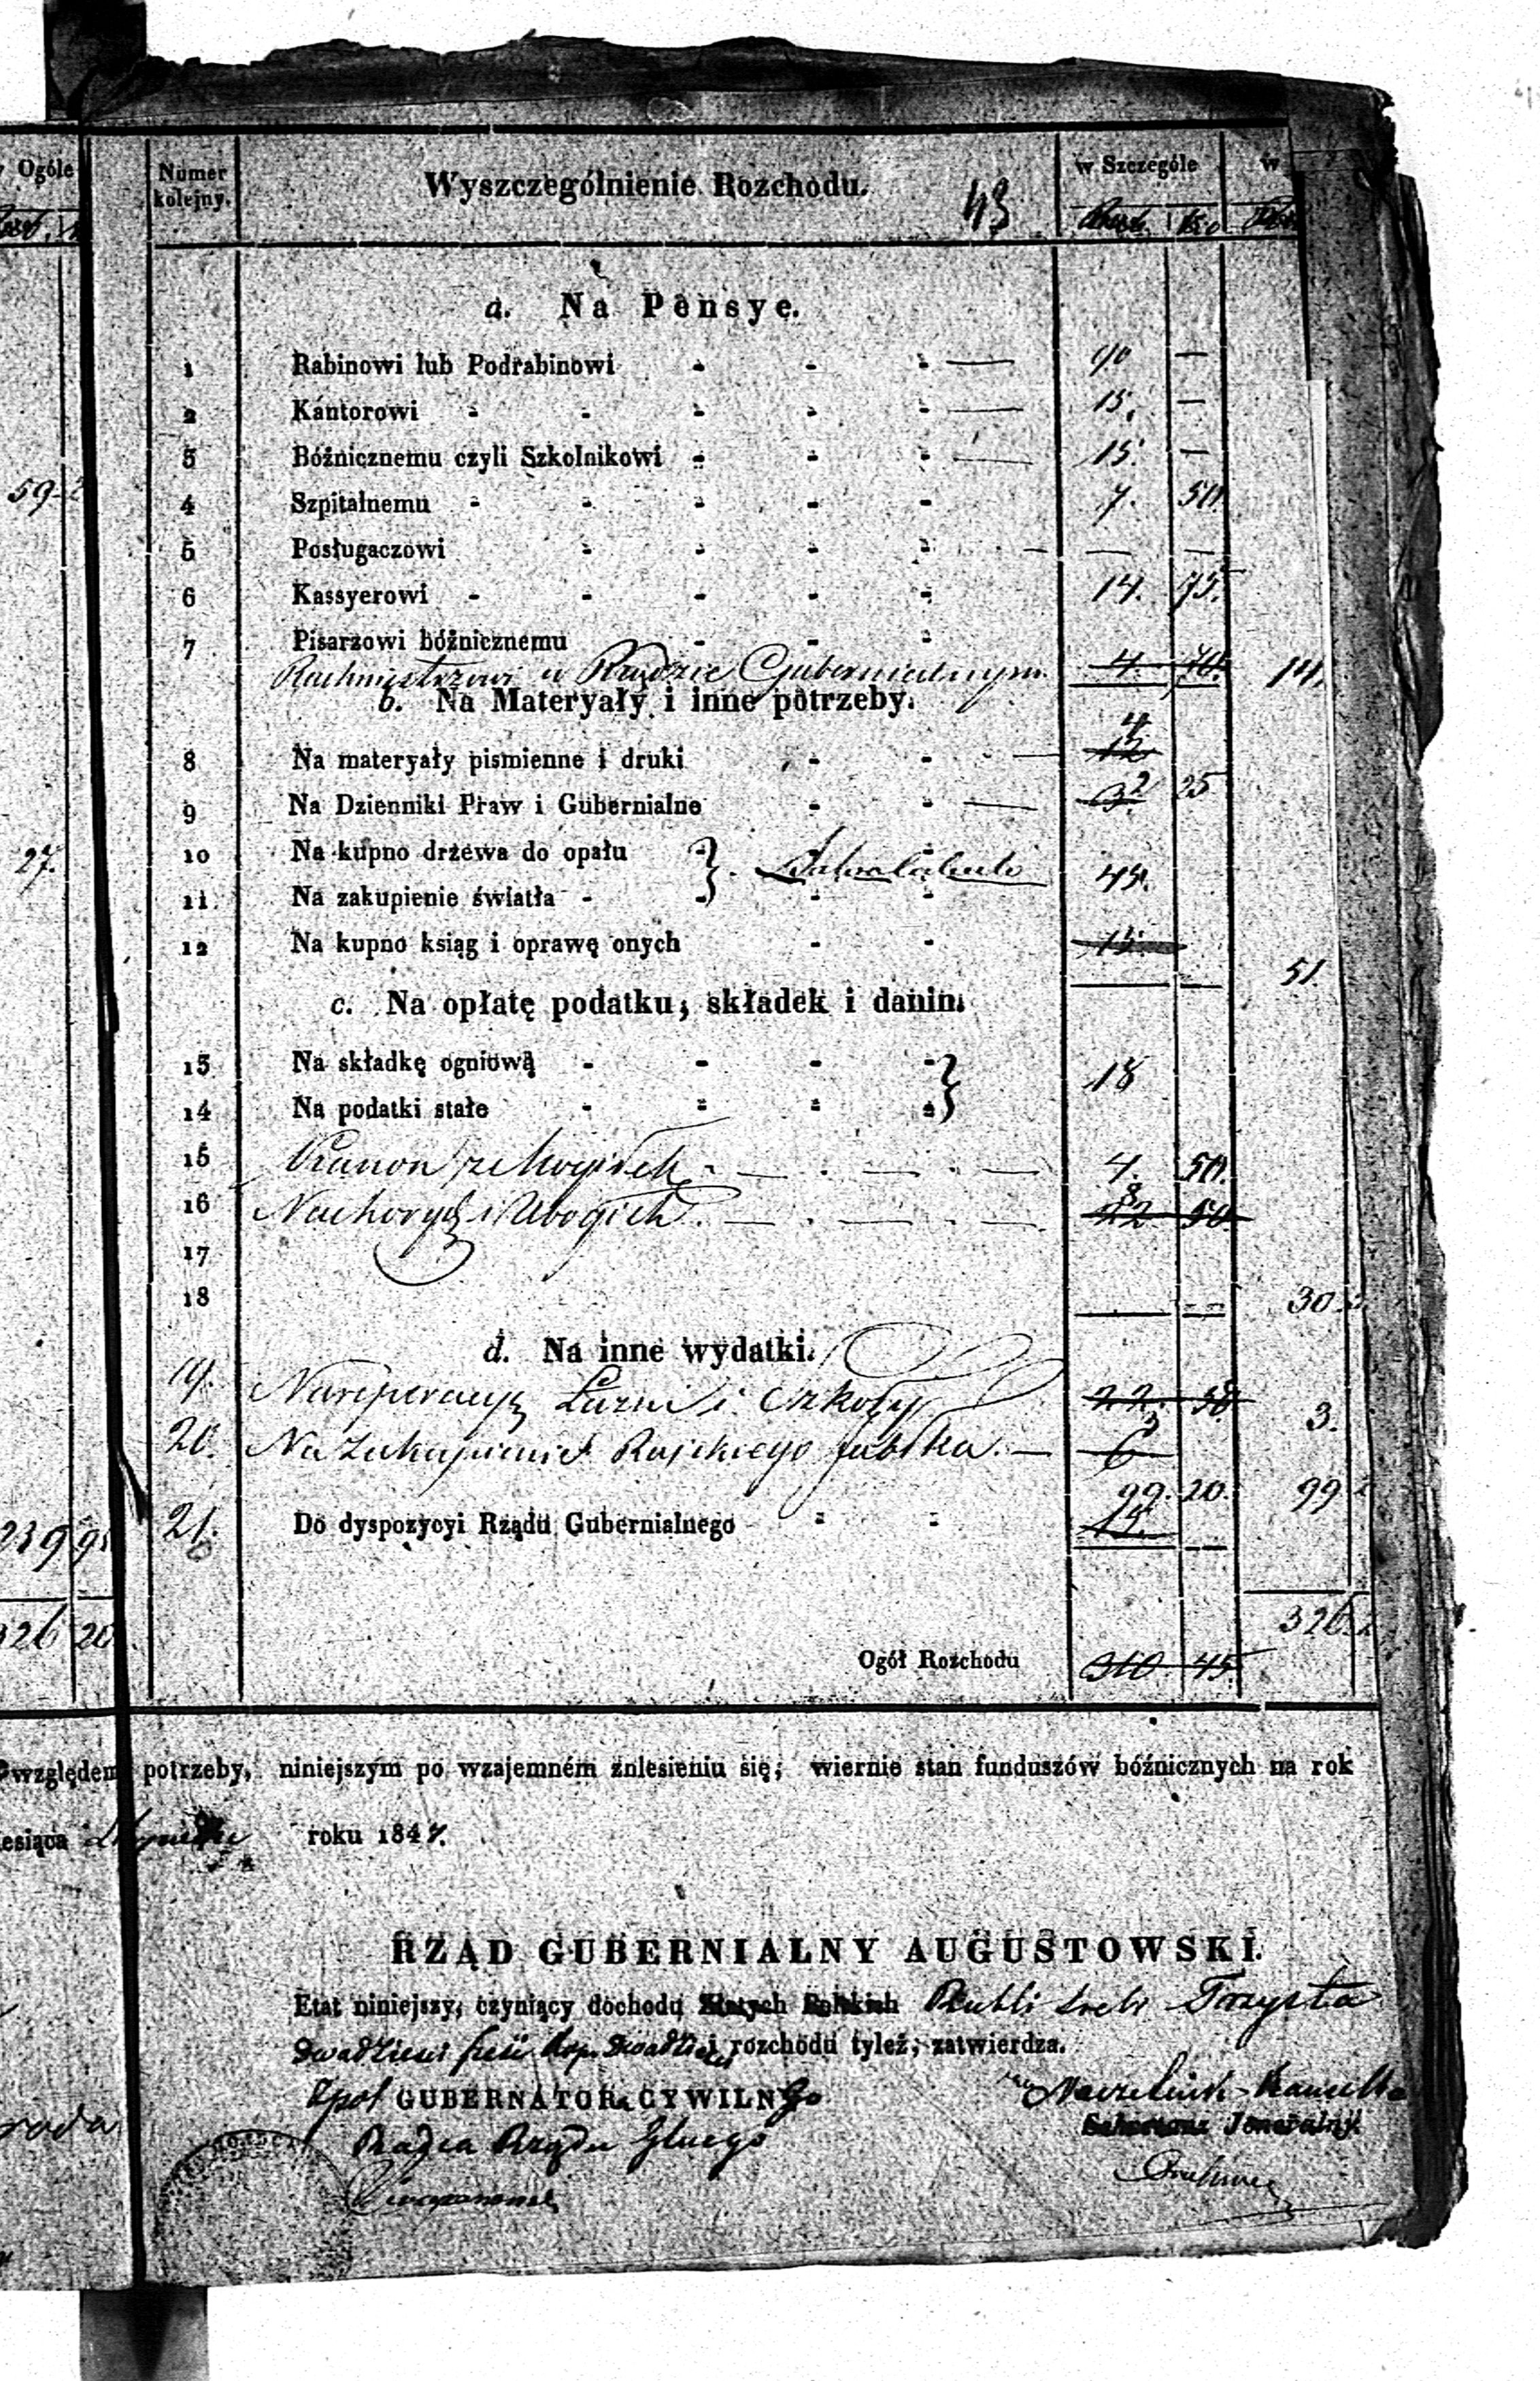 Ogóle
Numer kolejny.
Wyszczególnienie Rozchodu.
43
w Szczególe
w
a. Na Pensye.
1 Rabinowi lub Podrabinowi - - - 90 —
2 Kantorowi - - - - - 15. —
3 Bóżnicznemu czyli Szkolnikowi - - - 15. —
59
4 Szpitalnemu - - - - - 7. 50.
5 Posługaczowi - - - - — —
6 Kassyerowi - - - - - 14. 75.
7 Pisarzowi bóżnicznemu - - -
Rachmistrzowi w Rządzie Gubernialnym. 4. 70.
b. Na Materyały i inne potrzeby.
8 Na materyały piśmienne i druki - - 4 12
9 Na Dzienniki Praw i Gubernialne - - 3. 2 25
10 Na kupno drzewa do opału
27.
11 Na zakupienie światła - 45.
12 Na kupno ksiąg i oprawę onych - - 15.
51.
c. Na opłatę podatku, składek i danin.
13 Na składkę ogniową - - - -
18
14 Na podatki stałe - - - -
15 Kanon 4. 50.
16 Na chorych i Ubogich. 8 22 50.
17
18
30
d. Na inne wydatki.
19. Na reperacyę Łaźni i Szkoły 22. 50
3.
20. Na zakupienie Rajskiego jabłka. — 3 6
99. 20. 99
21. Do dyspozycyi Rządu Gubernialnego - - 15.
239 95
326 20
326.
Ogół Rozchodu 310 45
względem potrzeby, niniejszym po wzajemném zniesieniu się, wiernie stan funduszów bóżnicznych na rok
esiąca roku 1847.
RZĄD GUBERNIALNY AUGUSTOWSKI.
Etat niniejszy, czyniący dochodu Złotych Polskich Rubli sreb: Trzysta
dwadzieścia sześć kop. dwadzieścia i rozchodu tyleż, zatwierdza.
GUBERNATORA CYWILNEgo
Naczelnik Kancella
Sekretarz Jeneralny.
Radca Rządu Glnego